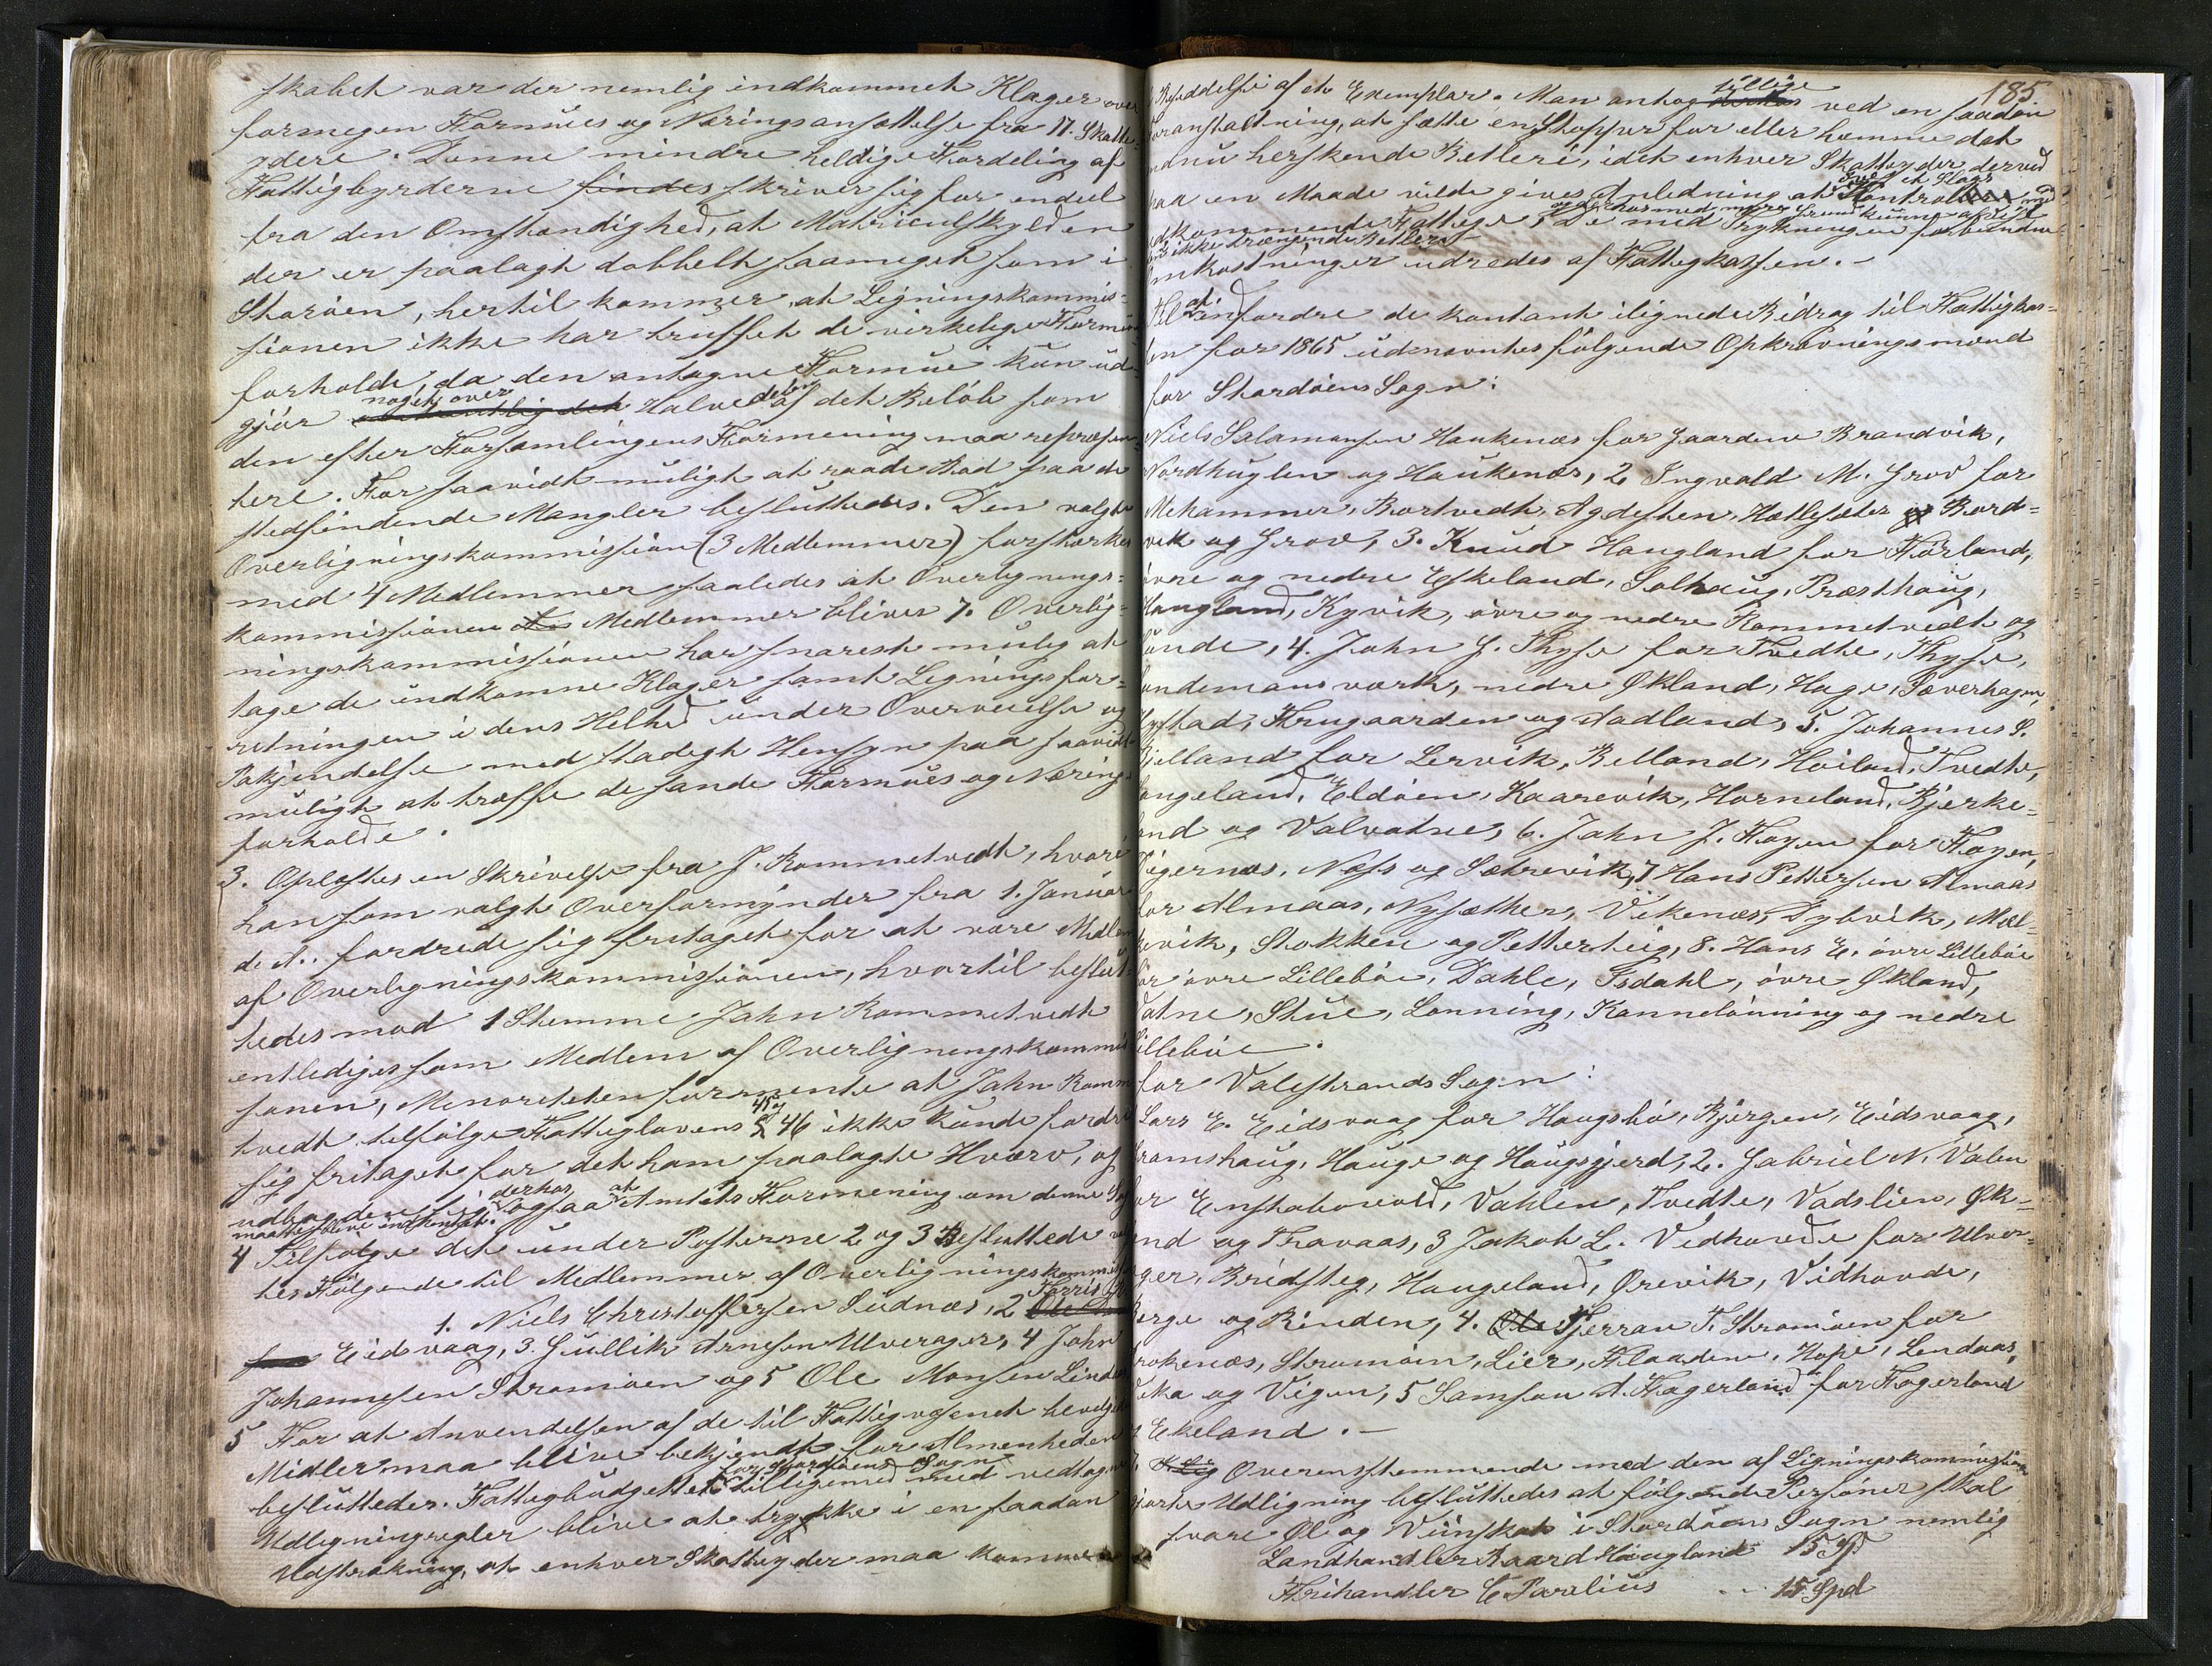 skabet var der nemlig indkommet Klager over
formegen Formues og Næringsansættelse fra 17. Skatte-
ydere. Denne mindre heldige Fordeling af
Fattigbyrderne findes skriver sig for endeel
fra den Omstændighed, at Matriculskylden
der er paalagt dobbelt saameget som i
Storöen, hertil kommer, at Ligningskommis-
sionen ikke har truffet de virkelige Formues
forholde, da den antagne Formue kun ud-
gjör noget over Halvedelen af det Belöb som
den efter Forsamlingens Formening maa repræsen-
tere. For saavidt muligt at raade Bod paa de
stedfindende Mangler besluttedes. Den valgte
Overligningskommission (3 Medlemmer) forstærkes
med 4 Medlemmer saaledes at Overlignings-
kommissionens Medlemmer bliver 7. Overlig-
ningskommissionen har snarest mulig at
tage de indkomne Klager samt Ligningsfor-
retningen i dens Helhed under Overveielse og
Paakjendelse med stadigt Hensyn paa saavidt
muligt at træffe de sande Formues og Nærings
forholde.
3. Oplæstes en Skrivelse fra J. Rommetvedt, hvori
han som valgt Overformynder fra 1. Januar
d. A. fordrede sig fritaget for at være Medlem
af Overligningskommissionen, hvortil beslut-
tedes mod 1 Stemme John Rommetvedt
entlediges som Medlem af Overligningskommis
sionen, Minoriteten formente at John Romme
tvedt tilfölge Fattiglovens § 45 og 46 ikke kunde fordre
sig fritaget for det ham paalagte Hværv, og
udbad sig derhos ogsaa at Amtets Formening om denne Sag
maatte blive indhentet.
4 Tilfölge det under Posterne 2 og 3 Besluttede valg
tes Fölgende til Medlemmer af Overligningskommis
1. Niels Christoffersen Sudnæs, 2 Torris
Eidsvaag, 3. Gullik Arnesen Ulverager, 4 John
Johannesen Stromöen og 5 Ole Monsen Linda
5 For at Anvendelsen af de til Fattigvæsenet bevilgede
Midler maa blive bekjendt for Almenheden
besluttedes. Fattigbudgettet for Stordöens Sogn tilligemed med vedtagne
Udligningsregler blive at trykke i en saadan
Udstrækning, at enhver Skatteyder maa komme

185
Besiddelse af et Exemplar. Man antog tillige ved en saadan
foranstaltning, at sætte en Stopper for eller hemme det
endnu herskende Betleri, idet enhver Skatteyder derved
paa en Maade vilde gives Anledning at et Slags Kontrol med
vedkommende Fattige, og derhos med mere Grund kunne afvise
de ikke trængende Betlere. De med Trykningen forbundne
Omkostninger udredes af Fattigkassen. -
Til at indfordre de kontant ilignede Bidrag til Fattigkas-
sen for 1865 udnævntes fölgende Opkrævningsmænd
for Stordöens Sogn:
Niels Salamonsen Haukenæs for Gaardene Brandvik,
Nordhuglen og Haukenæs, 2. Ingvald M. Grov for
Mehammer, Bortvedt, Agdesten, Hatlesæter og Bord-
vik og Grov, 3. Knud Hangland for Förland,
övre og nedre Eskeland, Solhaug, Præsthaug,
Haugland, Kyvik, övre og nedre Rommetvedt og
Lunde, 4. John J. Thyse for Tvedte, Thyse,
Landemansværk, nedre Økland, Hage, Sæverhagen,
Hystad, Frugaarden og Aadland, 5. Johannes S.
Bjelland for Lervik, Belland, Höiland, Tvedte,
Langeland, Eldöien, Kaarevik, Horneland, Bjerke-
land og Valvatne, 6. John J. Hagen for Hagen,
Digernæs, Næss og Sætrevik, 7 Hans Pettersen Almaas
for Almaas, Nysæther, Vikenæs, Dybvik, Mæl-
kevik, Stokken og Petterteig, 8. Hans E. övre Lilleböe
for övre Lilleböe, Dahle, Isdahl, övre Økland,
Vatne, Stue, Lonning, Kannelönning og nedre
Lilleböe.
for Valestrands Sogn:
Lars E. Eidsvaag for Haugsbö, Björgen, Eidsvaag,
Framshaug, Hauge og Haugsgjerd, 2. Gabriel N. Valen
for Enstabovold, Vahlen, Tvedte, Vadslien, Øk-
land og Fravaas, 3 Jakob L. Vedhovde for Ulver-
ager, Bredsteg, Haugeland, Ørevik, Vidhovde,
Berge og Rinden, 4. Ole Tjerran T. Stromöen for
Krokenæs, Stromöen, Lier, Flaadene, Hope, Lendaas,
Vika og Vigen, 5 Samson A. Fagerland for Fagerland
og Ekeland. -
7. Overensstemmende med den af Ligningskommission
gjorte Udligning besluttedes at fölgende Personer skal
svare Øl og Viinskat i Stordöens Sogn nemlig
Landhandler Aaard Haugland 15 Spd
Frihandler E Parelius .. 15 Spd